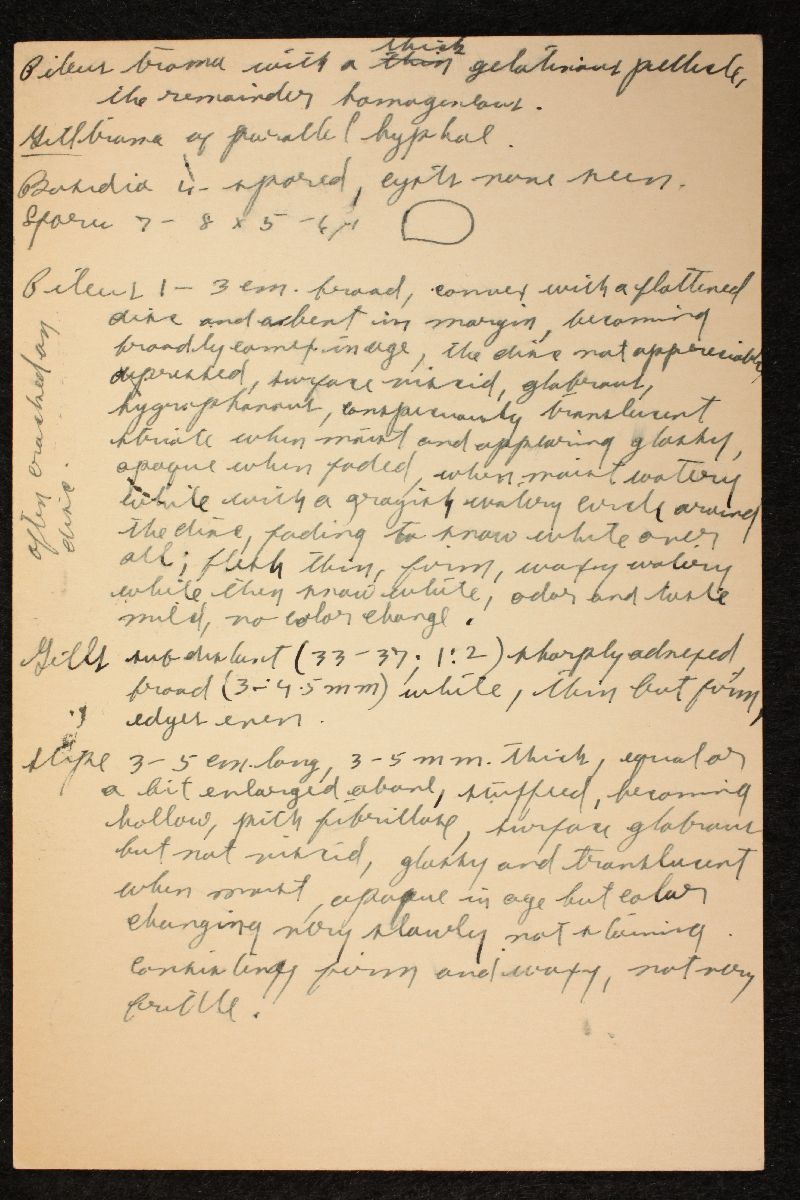 thick
Pileus trama with a thin gelatinous pellicle,
the remainder homogeneous.
Gill trama of parallel hyphae.
Basidia 4-spored, cysts none seen.
Spores 7-8 x 5-6µ
Pileus 1-3 cm. broad, convex with a flattened
disc and a bent in margin, becoming
broadly convex in age, the disc not appreciably
depressed, surface viscid, glabrous,
hygrophanous, conspicuously translucent
striate when moist and appearing glassy,
opaque when faded, when moist watery
white with a grayish watery circle around
the disc, fading to snow white over
all; flesh thin, firm, waxy watery
white then snow white, odor and taste
mild, no color change.
often cracked on
disc.
Gills subdistant (33-37; 1:2) sharply adnexed,
broad (3-4.5 mm) white, thin but firm,
edges even.
Stipe 3-5 cm. long, 3-5 mm. thick, equal or
a bit enlarged above, stuffed, becoming
hollow, pith fibrillose, surface glabrous
but not viscid, glassy and translucent
when moist, opaque in age but color
changing very slowly, not staining.
consistency firm and waxy, not very
brittle.